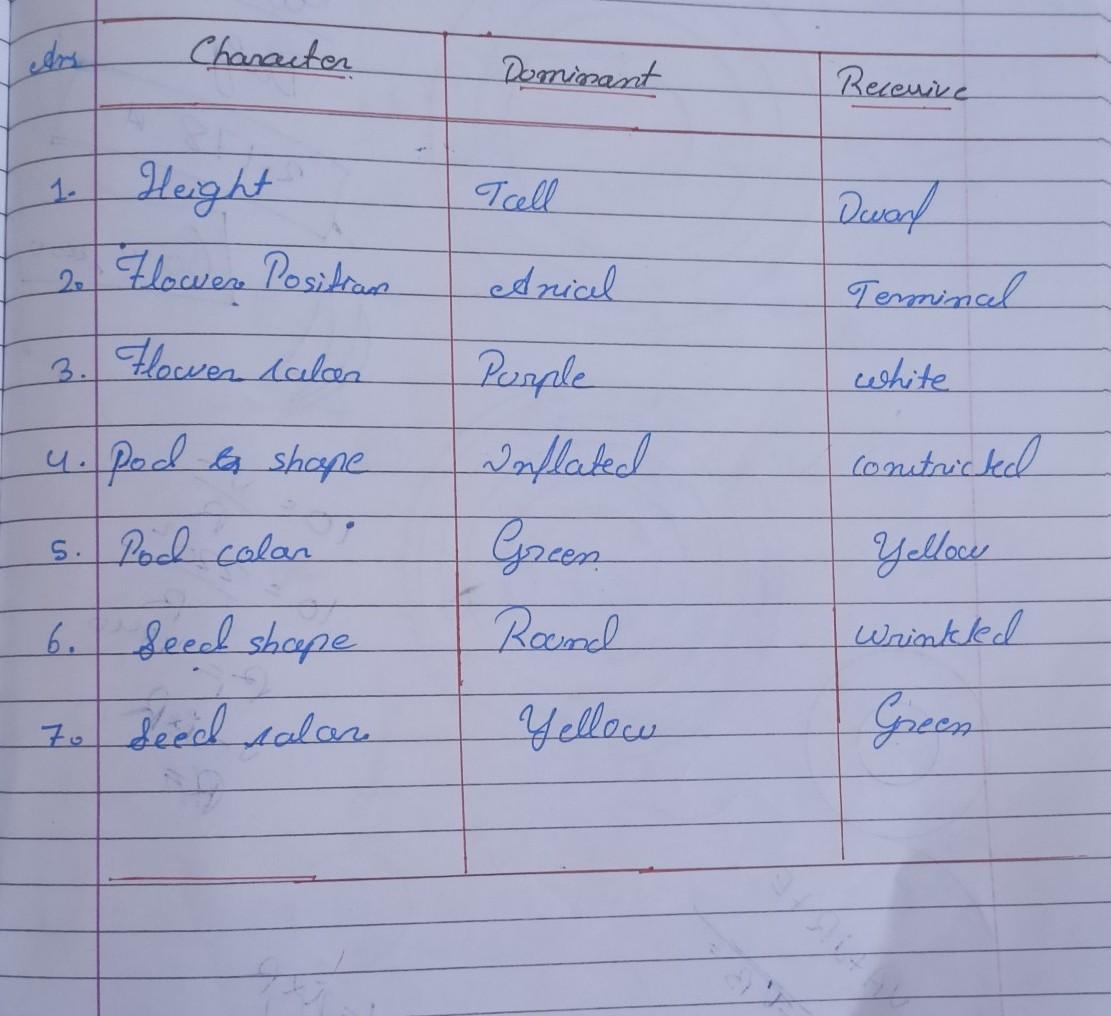 Ans Character Dominant Recessive
1. Height Tall Dwarf
2. Flower Position Axial Terminal
3. Flower colour Purple white
4. Pod shape Inflated constricted
5. Pod colour Green Yellow
6. Seed shape Round wrinkled
7. Seed colour Yellow Green